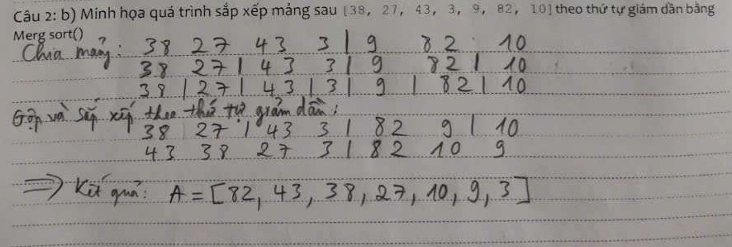 Câu 2: b) Minh họa quá trình sắp xếp mảng sau [38, 27, 43, 3, 9, 82, 10] theo thứ tự giảm dần bằng
Merg sort()
Chia mảng: 38 27 43 3 | 9 82 10
38 27 | 43 3 | 9 82 | 10
38 | 27 | 43 | 3 | 9 | 82 | 10
Gộp và sắp xếp theo thứ tự giảm dần:
38 27 | 43 3 | 82 9 | 10
43 38 27 3 | 82 10 9
=> Kết quả: A = [82, 43, 38, 27, 10, 9, 3]